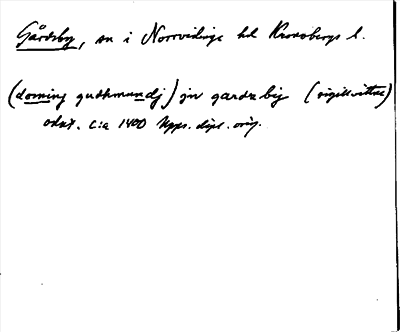 Gårdsby, sn i Norrvidinge hd Kronobergs l.
(doming gudhmundj) jn gardzbij (sigillvittne)
odat. c:a 1400 Upps. dipl. orig.